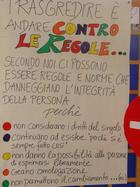 TRASGREDIRE È
ANDARE CONTRO
LE REGOLE...
SECONDO NOI CI POSSONO
ESSERE REGOLE E NORME CHE
DANNEGGIANO L'INTEGRITÀ
DELLA PERSONA
perché
non considerano i diritti del singolo
continuano ad esistere "perché si è
sempre fatto così"
non danno la possibilità alla persona
di esprimersi liberamente
creano omologazione
non permettono il cambiamento